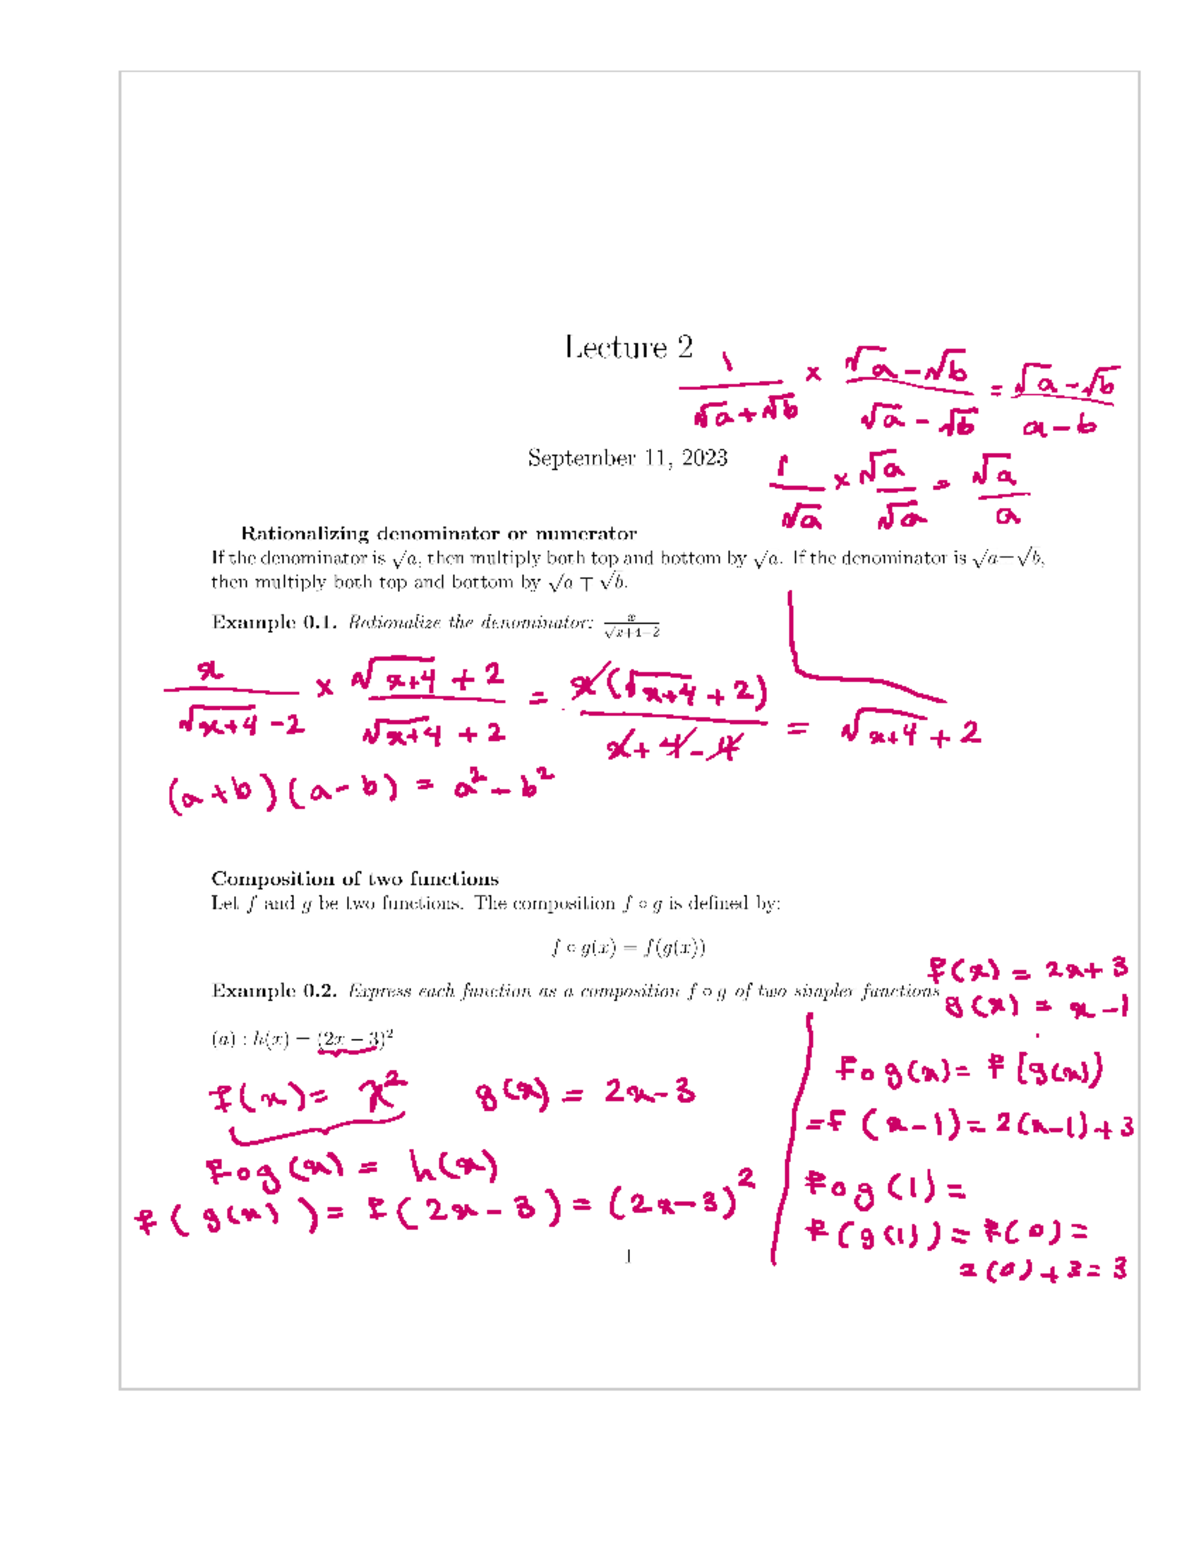 Lecture 2
1/(√a+√b) × (√a-√b)/(√a-√b) = (√a-√b)/(a-b)
September 11, 2023
1/√a × √a/√a = √a/a
Rationalizing denominator or numerator
If the denominator is √a, then multiply both top and bottom by √a. If the denominator is √a±√b,
then multiply both top and bottom by √a ∓ √b.
Example 0.1. Rationalize the denominator: x/(√x+4−2)
x/(√x+4 -2) × (√x+4 + 2)/(√x+4 + 2) = x(√x+4 + 2)/(x+4-4) = √x+4 + 2
(a+b)(a-b) = a²-b²
Composition of two functions
Let f and g be two functions. The composition f ∘ g is defined by:
f ∘ g(x) = f(g(x))
f(x) = 2x+3
Example 0.2. Express each function as a composition f ∘ g of two simpler functions
g(x) = x-1
(a) : h(x) = (2x − 3)²
fog(x) = f[g(x)]
f(x) = x² g(x) = 2x-3
=f(x-1) = 2(x-1)+3
fog(x) = h(x)
fog(1) =
f(g(x)) = f(2x-3) = (2x-3)²
f(g(1)) = f(0) =
2(0)+3=3
1